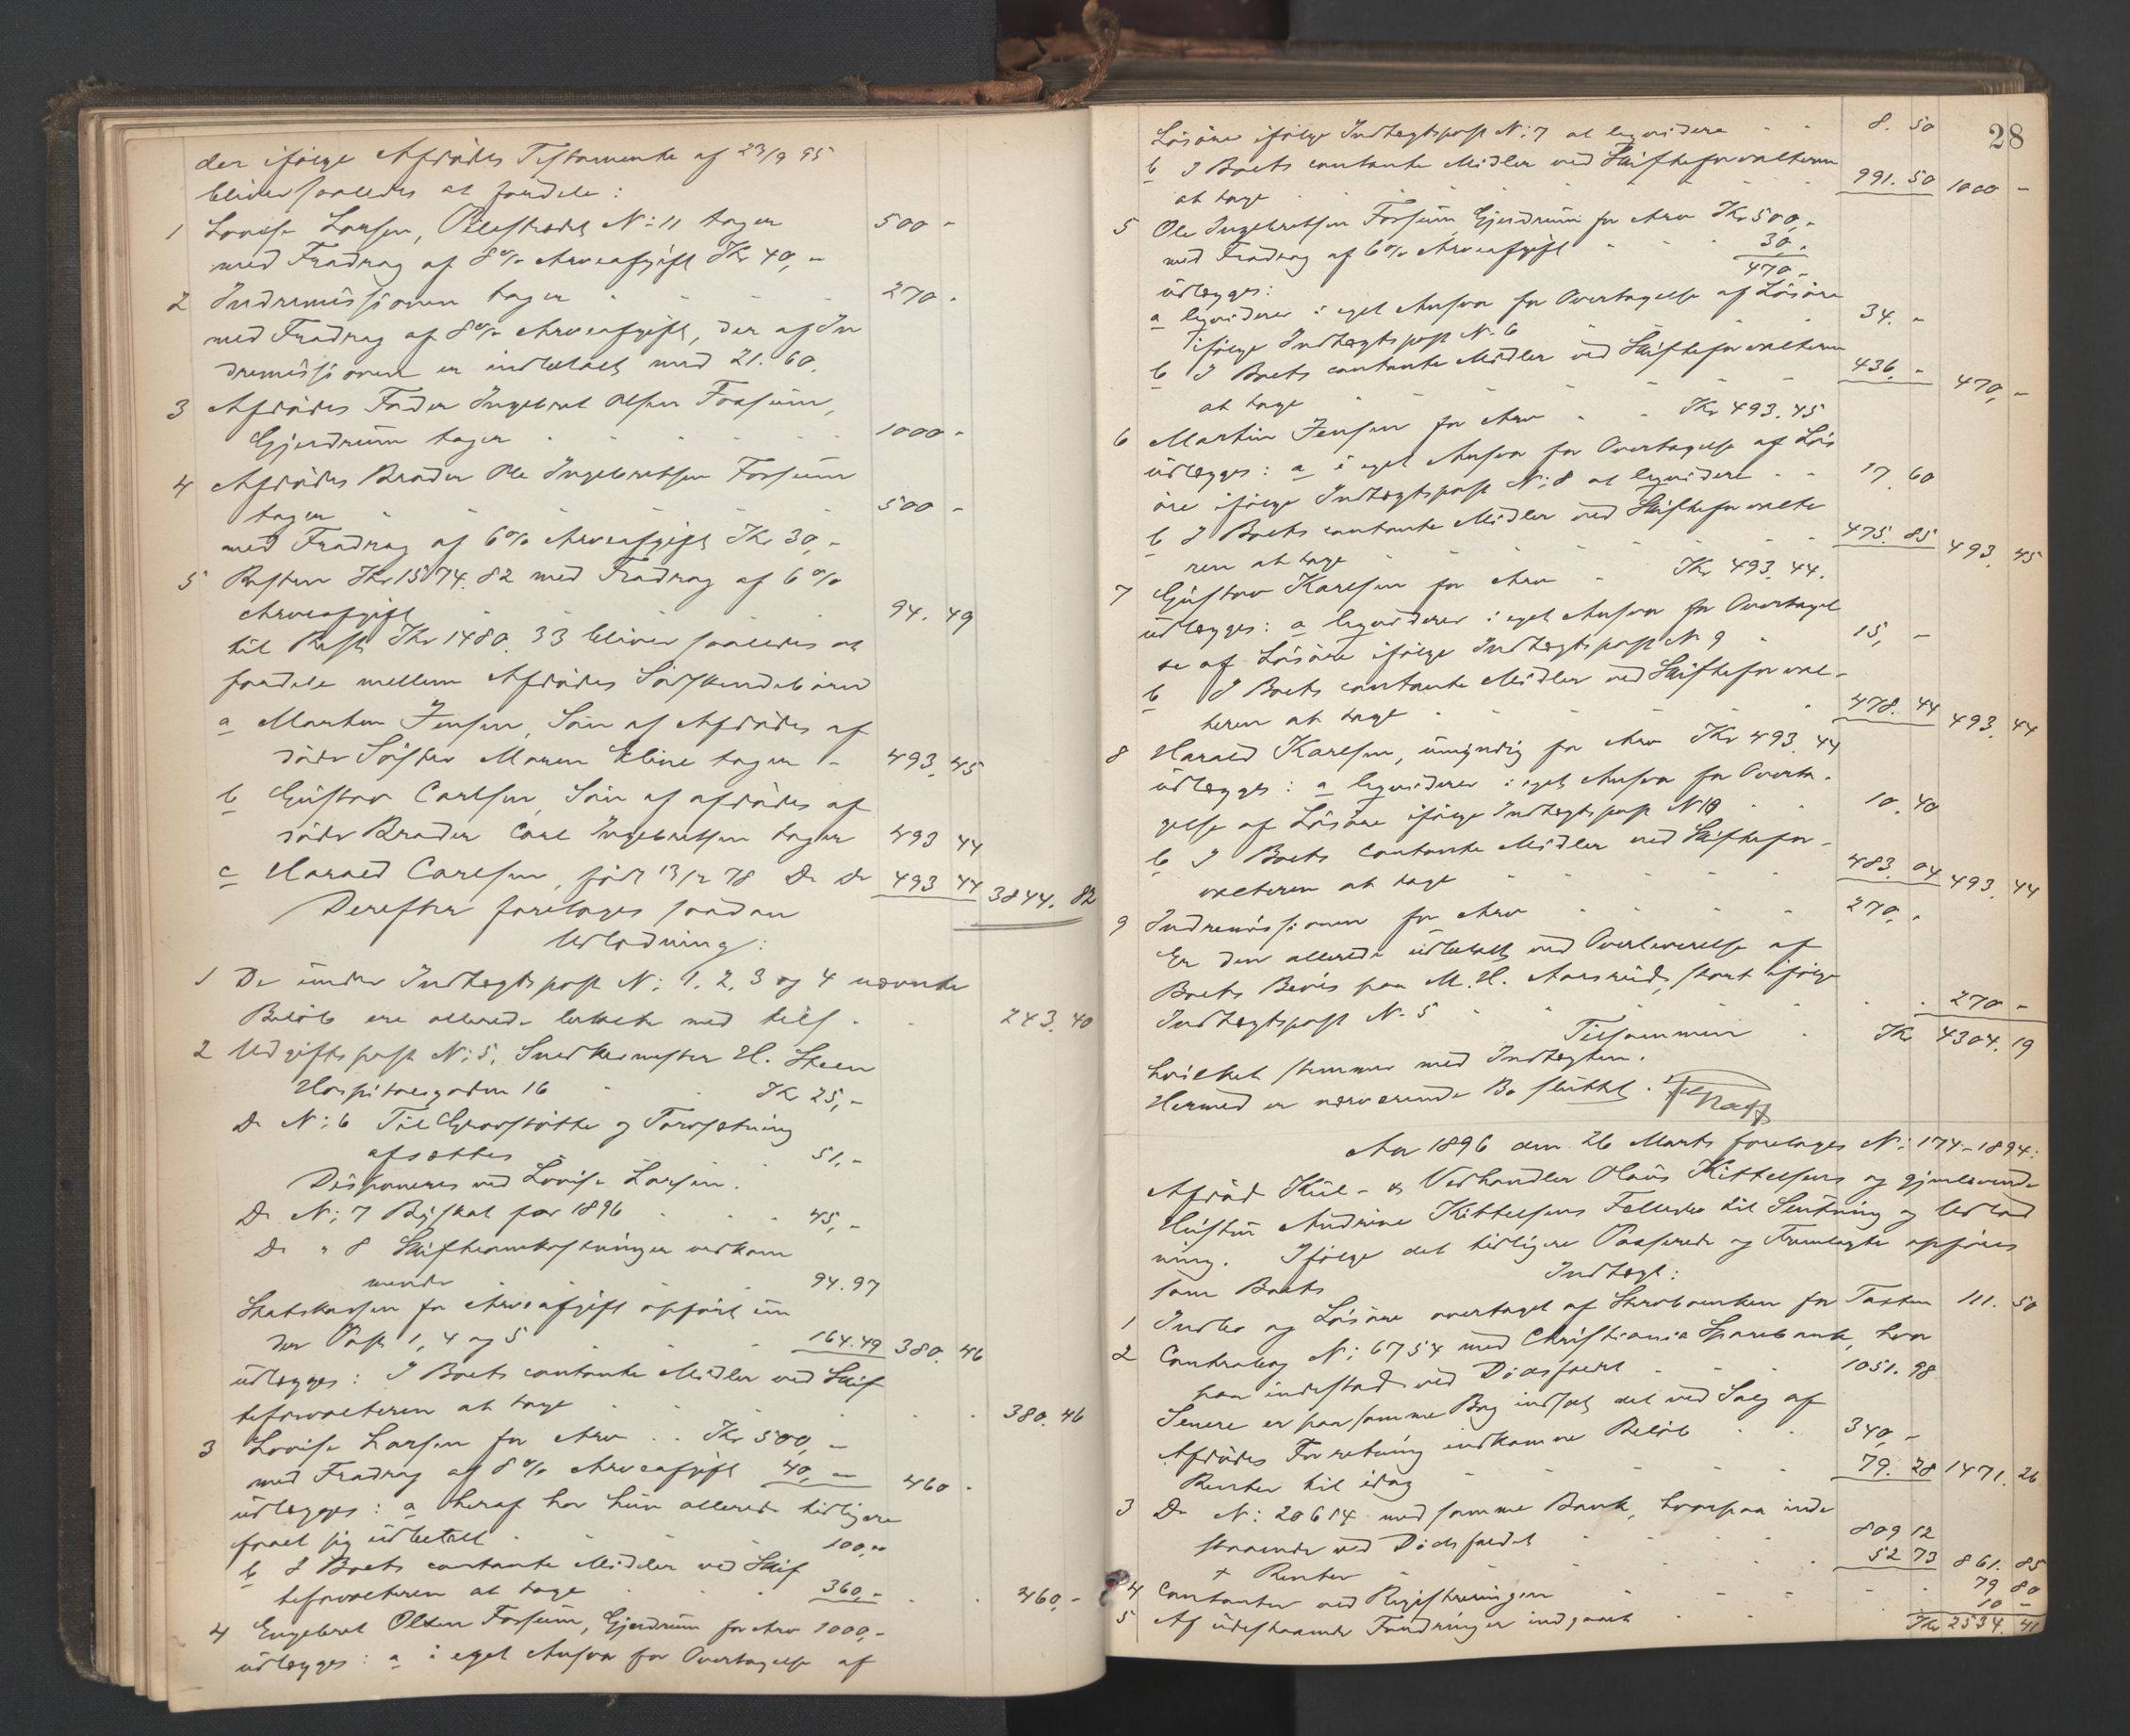 der ifølge Afdødes Testamente af 23/9 95
bliver saaledes at fordele:
1 Lovise Larsen, Pilestrædet N: 11 tager 500 -
med Fradrag af 8% Arveafgift Kr 40, -
2 Indremissionen tager 270 -
med Fradrag af 8% Arveafgift, der af In
dremissionen er indbetalt med 21.60.
3 Afdødes Fader Ingebret Olsen Fossum,
Gjerdrum tager 1000 -
4 Afdødes Broder Ole Ingebretsen Fossum
tager 500 -
med Fradrag af 6% Arveafgift Kr 30, -
5 Resten Kr 1574.82 med Fradrag af 6%
Arveafgift 94. 49
til Rest Kr 1480.33 bliver saaledes at
fordele mellem Afdødes Södskendebörn
a Martin Jensen, Sön af Afdødes af
døde Söster Maren Eline tager - 493. 45
b Gustav Carlsen, Sön af afdødes af
døde Broder Carl Ingebretsen tager 493 44
c Harald Carlsen, født 13/2 78 Do Do 493 44 3844. 82
Derefter foretages saadan
Udlodning:
1 De under Indtægtspost N: 1, 2, 3 og 4 nævnte
Beløb ere allerede betalte med tils. 243. 40
2 Udgiftspost N: 5, Snedkermester H. Steen
Hospitalsgaden 16 Kr 25, -
Do N: 6 Til Gravstøtte og Forsætning
afsættes 51. -
Disponeres ved Lovise Larsen.
Do N: 7 Byskat for 1896 45, -
Do " 8 Skifteomkostninger vedkom
mende 94.97
Statskassen for Arveafgift opført un
der Post 1, 4 og 5 164.49 380. 46
udlægges: I Boets contante Midler ved Skif
teforvalteren at tage 380. 46
3 Lovise Larsen for Arv .. Kr 500, -
med Fradrag af 8% Arveafgift 40, - 460 -
udlægges: a heraf har hun allerede tidligere
faaet sig udbetalt 100, -
b I Boets contante Midler ved Skif
teforvalteren at tage 360, - 460, -
4 Engebret Olsen Fossum, Gjerdrum for Arv 1000, -
udlægges: a i eget Ansvar for Overtagelse af
28
Løsøre ifølge Indtægtspost N: 7 at liqvidere 8. 50
b I Boets contante Midler ved Skifteforvalteren
at tage 991. 50 1000 -
5 Ole Ingebretsen Fossum Gjerdrum for Arv Kr 500, -
med Fradrag af 6% Arveafgift 30, -
470, -
udlægges:
a liqviderer i eget Ansvar for Overtagelse af Løsøre
ifølge Indtægtspost N. 6 34. -
b I Boets contante Midler ved Skifteforvalteren
at tage 436. - 470, -
6 Martin Jensen for Arv Kr 493.45
udlægges: a i eget Ansvar for Overtagelse af Løs
øre ifølge Indtægtspost N: 8 at liqvidere 17. 60
b I Boets contante Midler ved Skifteforvalte
ren at tage 475. 85 493. 45
7 Gustav Karlsen for Arv Kr 493.44.
udlægges: a liqviderer i eget Ansvar for Overtagel
se af Løsøre ifølge Indtægtspost N 9 15, -
b I Boets contante Midler ved Skifteforval-
teren at tage 478. 44 493. 44
8 Harald Karlsen, umyndig for Arv Kr 493.44
udlægges: a liqviderer i eget Ansvar for Overta-
gelse af Løsøre ifølge Indtægtspost N 10 10. 40
b I Boets contante Midler ved Skiftefor-
valteren at tage 483. 04 493. 44
9 Indremissionen for Arv 270. -
Er den allerede udbetalt ved Overleverelse af
Boets Bevis paa M. H. Aarsrud, stort ifølge
Indtægtspost N. 5 270 -
Tilsammen Kr 4304. 19
hvilket stemmer med Indtægten.
Hermed er nærværende Bo sluttet.
Aar 1896 den 26 Marts foretages N: 174-1894:
Afdød Kul- & Vedhandler Olaus Kittelsens og gjenlevende
Hustru Andrine Kittelsens Fællesbo til Slutning og Udlod
ning. Ifølge det tidligere Passerede og Fremlagte opføres
som Boets Indtægt:
1 Indbo og Løsøre overtaget af Skrabenken for Taxten 111. 50
2 Contrabog N: 6754 med Christiania Sparebank, hvor
paa indestod ved Dødsfaldet 1051. 98
Senere er paa samme Bog indsat det ved Salg af
Afdødes Forretning indkomne Beløb 340, -
Renter til idag 79. 28 1471. 26
3 Do N: 20614 med samme Bank, hvorpaa inde
staaende ved Dødsfaldet 809 12
+ Renter 52 73 861. 85
4 Contanter ved Registreringen 79 80
5 Af udestaaende Fordringer indgaaet 10 -
Kr 2534. 41